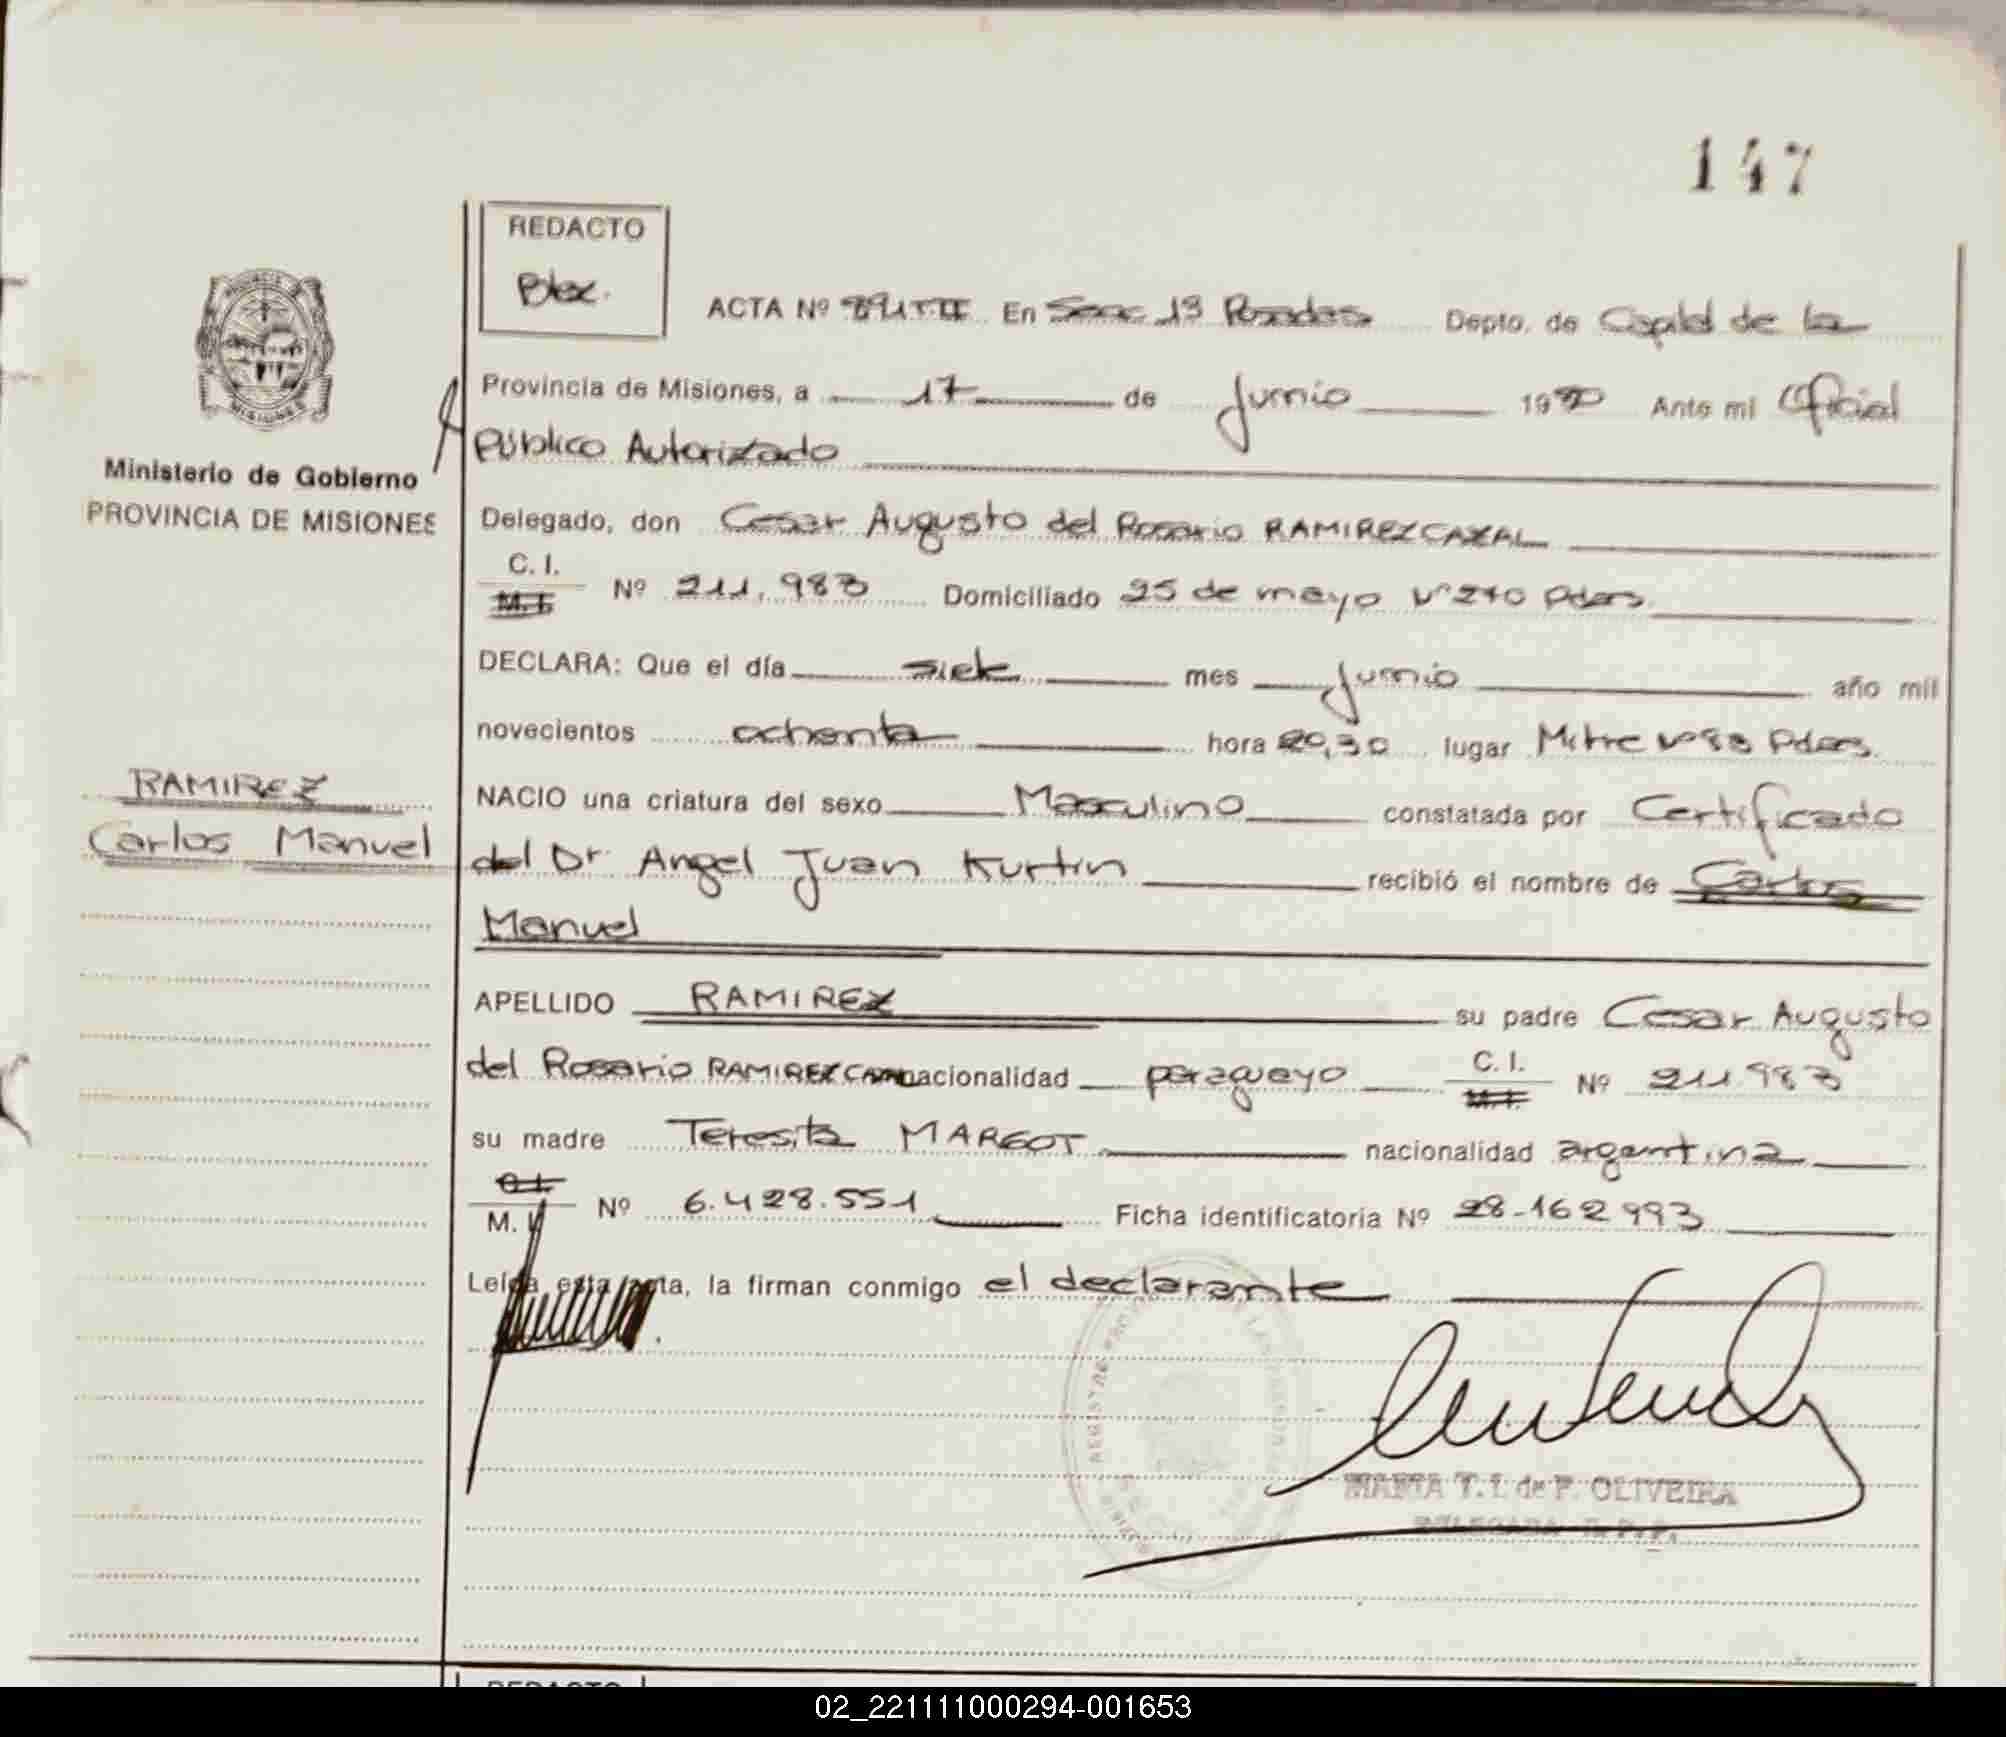 147
REDACTO
ACTA Nº En Secc 13 Posadas Depto. de Capital de la
Provincia de Misiones, a 17 de Junio 1980 Ante mi Oficial
Público Autorizado
Ministerio de Gobierno
PROVINCIA DE MISIONES
Delegado, don Cesar Augusto del Rosario RAMIREZ CAXAL
C. I.
M. I. Nº 211.983 Domiciliado 25 de mayo Nº 240 Pdas.
DECLARA: Que el día siete mes Junio año mil
novecientos ochenta hora 20,30 lugar Mitre Nº 83 Pdas.
RAMIREZ
Carlos Manuel
NACIO una criatura del sexo Masculino constatada por Certificado
del Dr. Angel Juan Kurtin recibió el nombre de Carlos
Manuel
APELLIDO RAMIREZ su padre Cesar Augusto
del Rosario RAMIREZ CAXAL nacionalidad paraguayo C. I. M. I. Nº 211.983
su madre Teresita MARGOT nacionalidad argentina
C. I.
M. I. Nº 6.428.551 Ficha identificatoria Nº 28-162993
Leída esta acta, la firman conmigo el declarante
MARTA T. I. de F. OLIVEIRA
DELEGADA R. P. P.
REDACTO
02_221111000294-001653